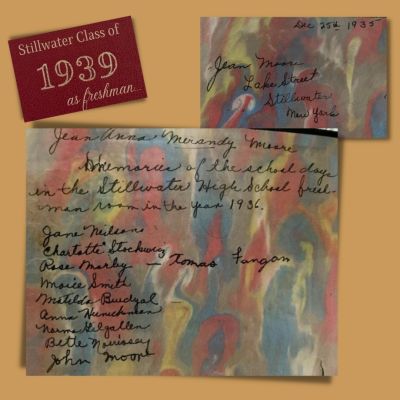 Stillwater Class of
1939
as freshman...
Dec 25th 1935
Jean Moore
Lake Street
Stillwater
New York
Jean Anna Merandy Moore
Memories of the school days
in the Stillwater High School fresh-
man room in the year 1936.
Jane Neilson
Charlotte Stockwig
Rose Morby — Tomas Fangan
Smith
Matilda
Anna
Norma Gilgallen
Bette Morrissey
John Moore